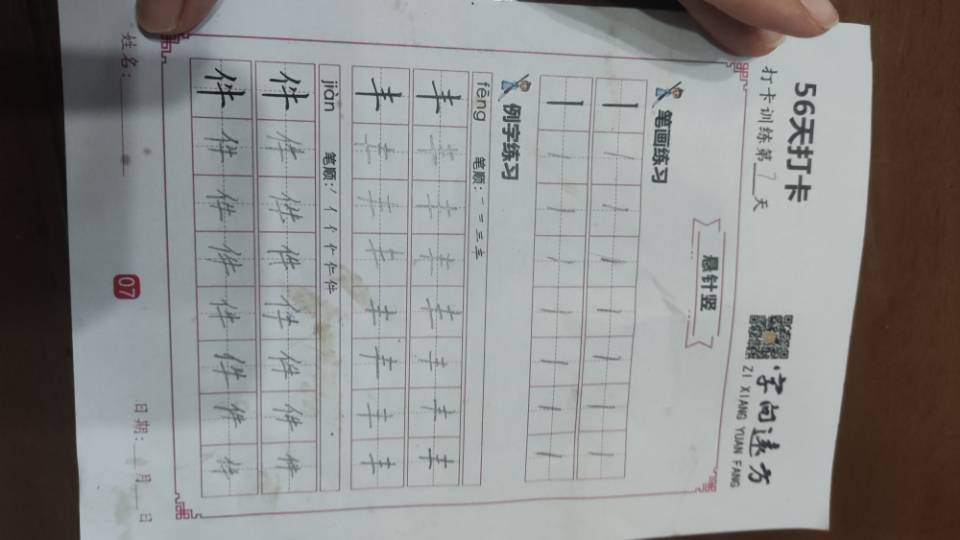 56天打卡
打卡训练第7天
字向远方
ZI XIANG YUAN FANG
悬针竖
笔画练习
丨丨丨丨丨丨丨丨
丨丨丨丨丨丨丨丨
例字练习
fēng 笔顺：一 二 三 丰
丰丰丰丰丰丰丰丰
丰丰丰丰丰丰丰丰
jiàn 笔顺：丿 亻 亻 仁 件 件
件件件件件件件件
件件件件件件件件
姓名：
07
日期：__月__日